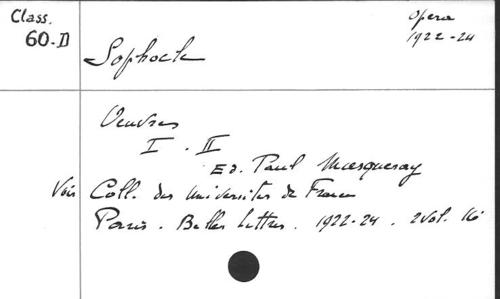 Class.
60.D
Opera
1922-24
Sophocle
Oeuvres
I. II
Ed. Paul Masqueray
Voir Coll. des Universités de France
Paris. Belles Lettres. 1922-24. 2 vol. 16